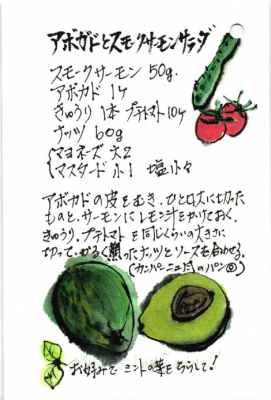 アボガドとスモークサーモンサラダ
スモークサーモン 50g.
アボカド 1ヶ
きゅうり 1本 プチトマト10ヶ
ナッツ 60g
マヨネーズ 大2
マスタード 小1 塩少々
アボカドの皮をむき、ひと口大に切った
ものと、サーモンにレモン汁をかけておく。
きゅうり、プチトマトを同じくらいの大きさに
切って、かるく煎ったナッツとソースを合わせる。
(カンパーニュ風のパン◎)
お好みでミントの葉をちらして!